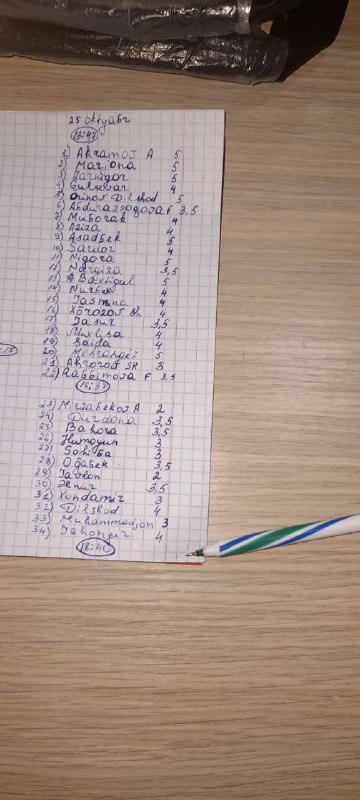 25 октября
13:47
1) Akramov A 5
2) Marjona 5
3) Zarnigor 5
4) Gulsevar 4
5) Orinov Dilshod 5
6) Abdurazzoqova F 3,5
7) Muborak 4
8) Aziza 4
9) Asadbek 5
10) Sardor 4
11) Nigora 5
12) Nargiza 3,5
13) Baxtigul 5
14) Nurbek 4
15) Jasmina 4
16) Xorozov Sh 4
17) Jasur 3,5
18) Muxlisa 4
19) Saida 4
20) Mehrangiz 5
21) Ahrorov SH 3
22) Rabbimova F 3,5
23) Mirzabekov A 2
24) Durdona 3,5
25) Bahora 3,5
26) Humoyun 3
27) Sohiba 3
28) Ogabek 3,5
29) Javlon 2
30) 3,5
31) Xondamir 3
32) Dilshod 4
33) Muhammadjon 3
34) Jahongir 4